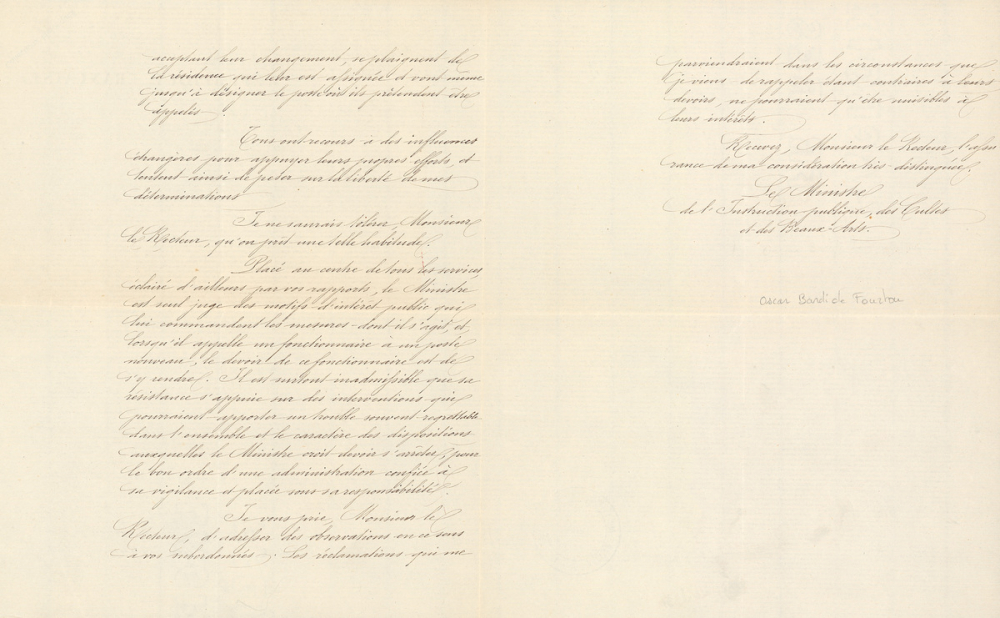 acceptant leur changement, se plaignent de
la résidence qui leur est assignée et vont même
jusqu'à désigner le poste où ils prétendent être
appelés.
Tous ont recours à des influences
étrangères pour appuyer leurs propres efforts, et
tentent ainsi de peser sur la liberté de mes
déterminations
Je ne saurais tolérer, Monsieur
le Recteur, qu'on prît une telle habitude.
Placé au centre de tous les services,
éclairé d'ailleurs par vos rapports, le Ministre
est seul juge des motifs d'intérêt public qui
lui commandent les mesures dont il s'agit, et,
lorsqu'il appelle un fonctionnaire à un poste
nouveau, le devoir de ce fonctionnaire est de
s'y rendre. Il est surtout inadmissible que sa
résistance s'appuie sur des interventions qui
pourraient apporter un trouble souvent regrettable
dans l'ensemble et le caractère des dispositions
auxquelles le Ministre croit devoir s'arrêter, pour
le bon ordre d'une administration confiée à
sa vigilance et placée sous sa responsabilité.
Je vous prie, Monsieur le
Recteur, d'adresser des observations en ce sens
à vos subordonnés. Les réclamations qui me
parviendraient dans les circonstances que
je viens de rappeler étant contraires à leurs
devoirs, ne pourraient qu'être nuisibles à
leurs intérêts.
Recevez, Monsieur le Recteur, l'assu
rance de ma considération très distinguée.
Le Ministre
de l'Instruction publique, des Cultes
et des Beaux-Arts.
Oscar Bardi de Fourtou